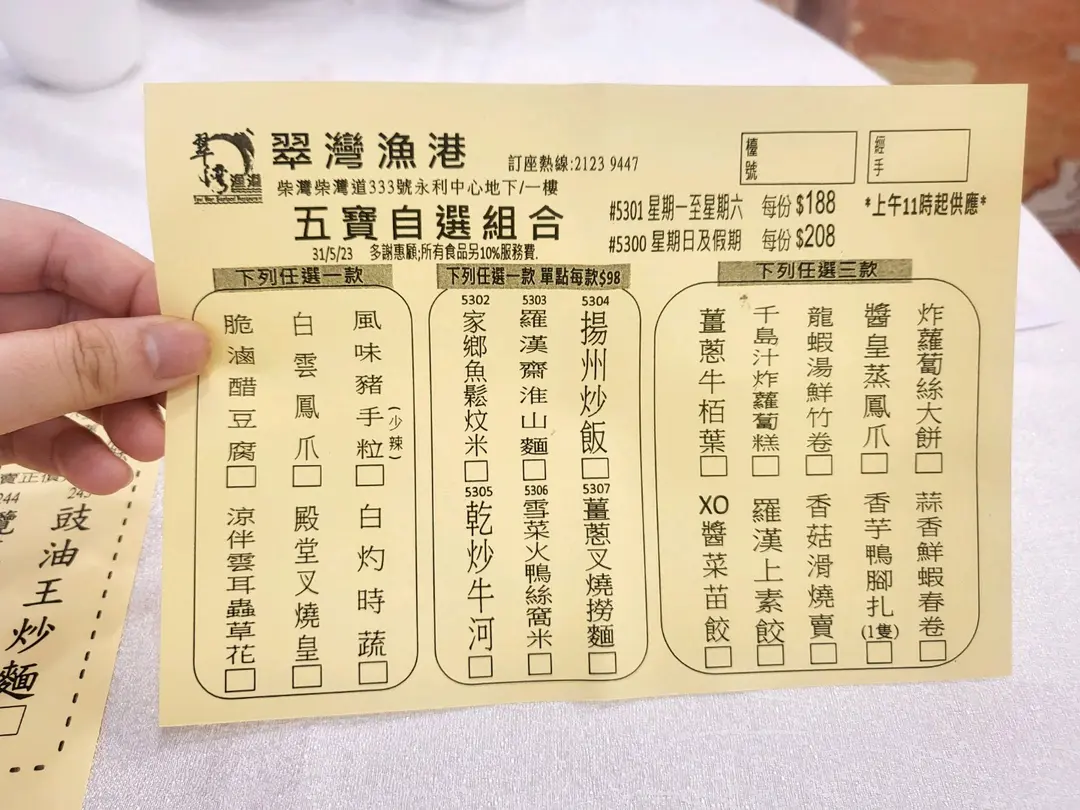 翠灣漁港
訂座熱線:2123 9447
檯號
經手
柴灣柴灣道333號永利中心地下/一樓
五寶自選組合
#5301 星期一至星期六 每份 $188
*上午11時起供應*
#5300 星期日及假期 每份 $208
31/5/23 多謝惠顧;所有食品另10%服務費.
下列任選一款
脆滷醋豆腐
白雲鳳爪
風味豬手粒(少辣)
涼伴雲耳蟲草花
殿堂叉燒皇
白灼時蔬
下列任選一款 單點每款$98
5302
家鄉魚鬆炆米
5303
羅漢齋淮山麵
5304
揚州炒飯
5305
乾炒牛河
5306
雪菜火鴨絲窩米
5307
薑蔥叉燒撈麵
下列任選三款
薑蔥牛栢葉
千島汁炸蘿蔔糕
龍蝦湯鮮竹卷
醬皇蒸鳳爪
炸蘿蔔絲大餅
XO醬菜苗餃
羅漢上素餃
香菇滑燒賣
香芋鴨腳扎(1隻)
蒜香鮮蝦春卷
豉油王炒麵